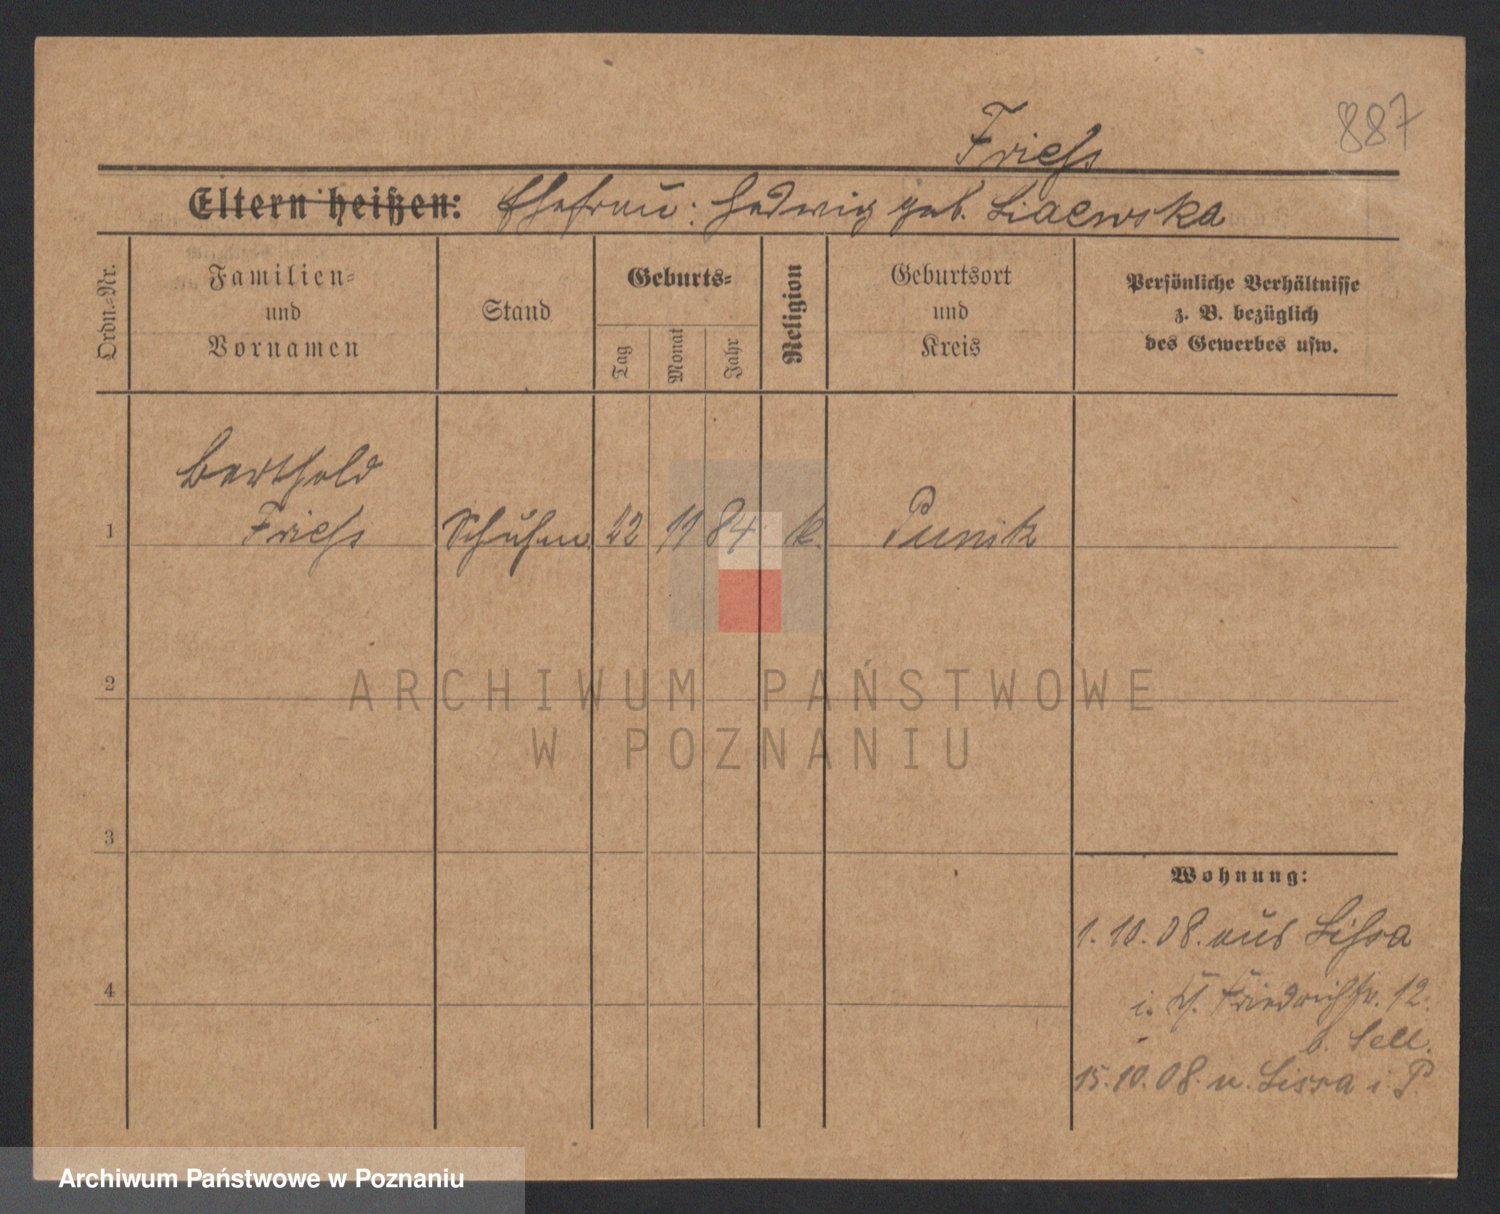 887
Friehs
Eltern heißen: Ehefrau: Hedwig geb. Liaewska
Ordn.-Nr.
Familien-
und
Vornamen
Stand
Geburts-
Tag
Monat
Jahr
Religion
Geburtsort
und
Kreis
Persönliche Verhältnisse
z. B. bezüglich
des Gewerbes usw.
Berthold
1 Friehs Schuhm. 22 11 84 k. Punik
2
3
4
Wohnung:
1.10.08. aus Lissa
i. Friedrichstr. 12.
b. Sell.
15.10.08 n. Lissa i P.
ARCHIWUM PAŃSTWOWE
W POZNANIU
Archiwum Państwowe w Poznaniu